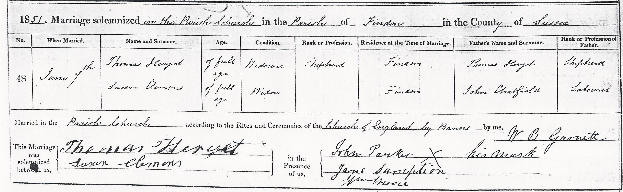 1851. Marriage solemnized in the Parish Church in the Parish of Findon in the County of Sussex
No. When Married. Name and Surname. Age. Condition. Rank or Profession. Residence at the Time of Marriage. Father's Name and Surname. Rank or Profession of Father.
48 June 7th Thomas of full age Widower Shepherd Findon Thomas Shepherd
Susan Clemons of full age Widow Findon John Labourer
Married in the Parish Church according to the Rites and Ceremonies of the Church of England by Banns by me, W
This Marriage was solemnized between us, Thomas
Susan Clemons
in the Presence of us, John Parker X his mark
Jane